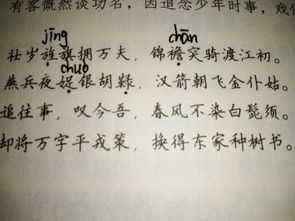 有客慨然谈功名，因追念少年时事，戏
jīng chān
壮岁旌旗拥万夫，锦襜突骑渡江初。
chuò
燕兵夜娖银胡，汉箭朝飞金仆姑。
追往事，叹今吾，春风不染白髭须。
却将万字平戎策，换得东家种树书。